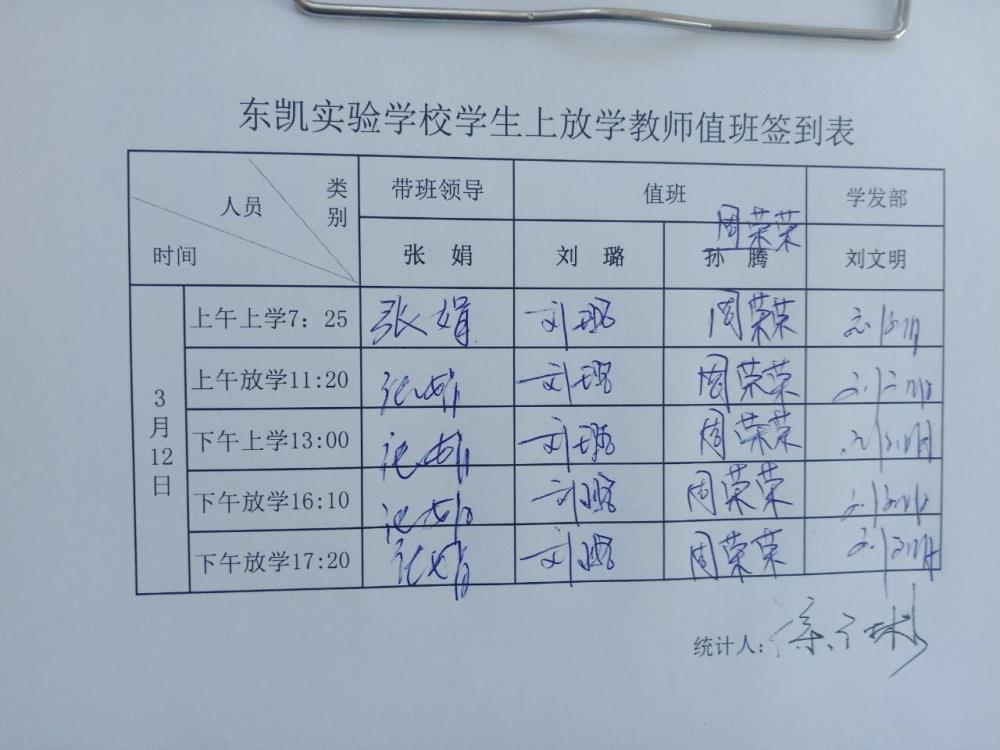 东凯实验学校学生上放学教师值班签到表
类别 人员 时间 带班领导 值班 学发部
周荣荣
张娟 刘璐 孙腾 刘文明
3月12日
上午上学7：25 张娟 刘璐 周荣荣 刘文明
上午放学11:20 张娟 刘璐 周荣荣 刘文明
下午上学13:00 张娟 刘璐 周荣荣 刘文明
下午放学16:10 张娟 刘璐 周荣荣 刘文明
下午放学17:20 张娟 刘璐 周荣荣 刘文明
统计人: